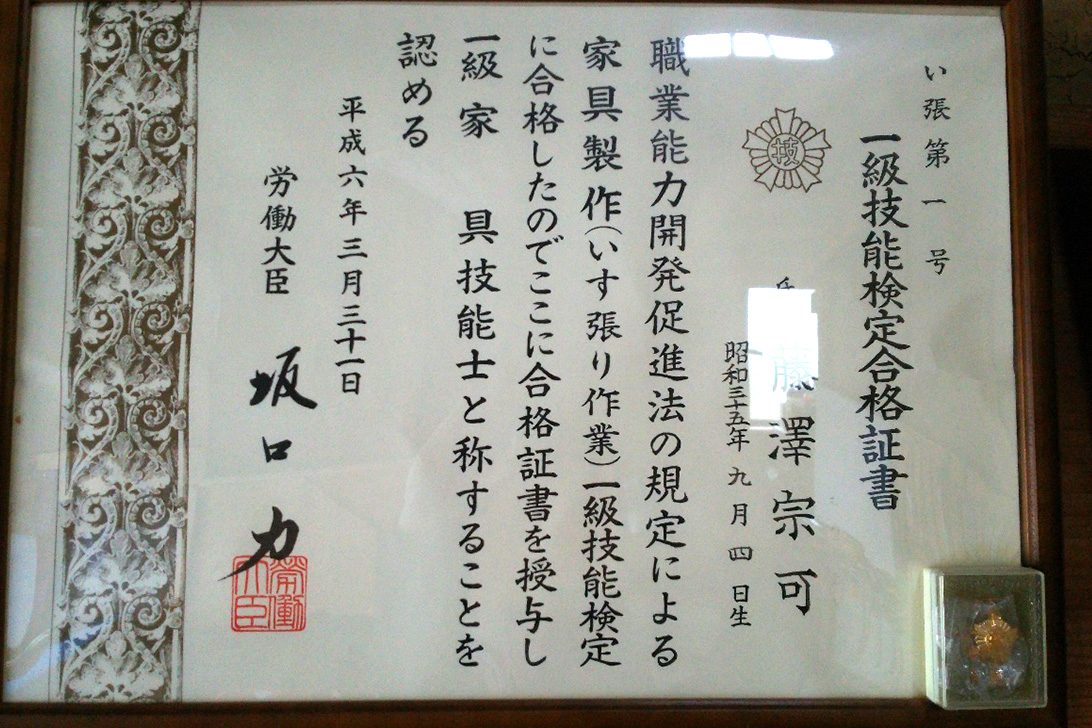 い張第一号
一級技能検定合格証書
技
藤澤宗可
昭和三十五年九月四日生
職業能力開発促進法の規定による
家具製作(いす張り作業)一級技能検定
に合格したのでここに合格証書を授与し
一級家具技能士と称することを
認める
平成六年三月三十一日
労働大臣 坂口力
労働大臣